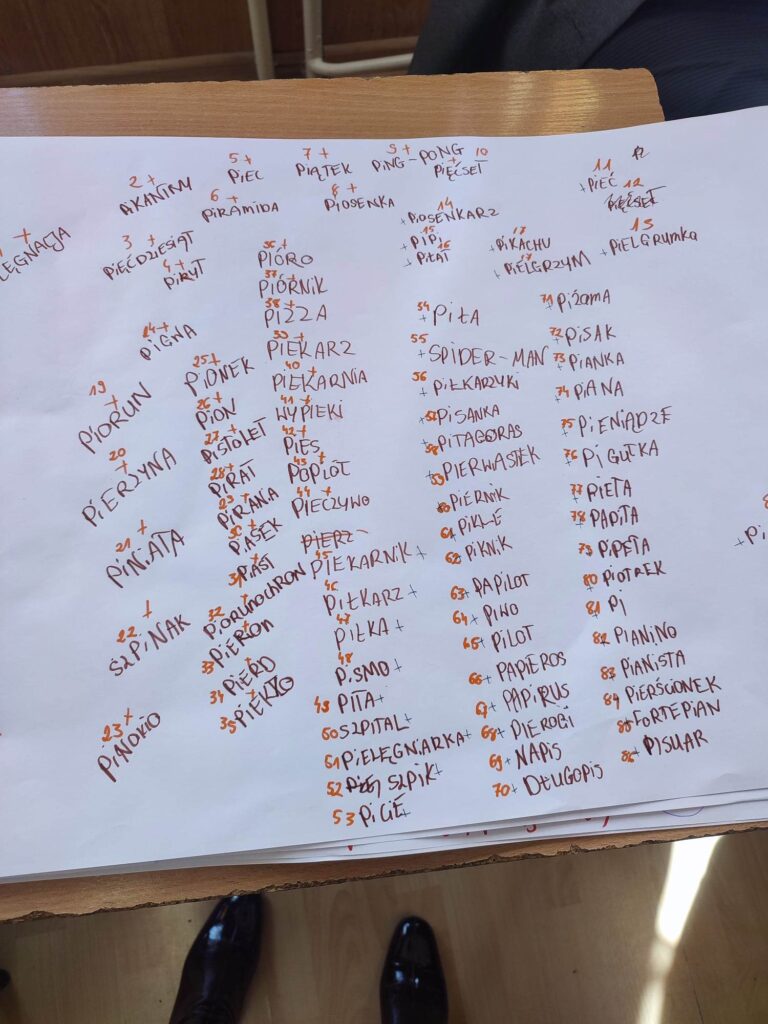 1 +
LĘGNACJA
2 +
AKANTNY
3 +
PIĘĆDZIESIĄT
4 +
PIRYT
5 +
PIEC
6 +
PIRAMIDA
7 +
PIĄTEK
8 +
PIOSENKA
9 +
PING-PONG
10 +
PIĘĆSET
11
+ PIĘĆ
12
12
13
+ PIELGRUMKA
14
+ PIOSENKARZ
15
+ PIPI
16
+ PIŁAT
17
+ PIKACHU
17
+ PIELGRZYM
19
+
PIORUN
20
+
PIERZYNA
21 +
PINIATA
22
SZPINAK
23 +
PINOKIO
24 +
PIGWA
25 +
PIONEK
26 +
PION
27 +
PISTOLET
28 +
PIRAT
29 +
PIRANIA
30 +
PIASEK
31 +
PIAST
32 +
PIORUNOCHRON
33 PIERON
34 PIERD
35 PIEKŁO
36 +
PIÓRO
37 +
PIÓRNIK
38 +
PIZZA
39 +
PIEKARZ
40 +
PIEKARNIA
41 +
WYPIEKI
42 +
PIES
43 +
POPIÓŁ
44 +
PIECZYWO
PIERZ
45
PIEKARNIK +
46
PIŁKARZ +
47
PIŁKA +
48
PISMO +
49 PITA +
50 SZPITAL +
51 PIELĘGNIARKA +
52 SZPIK +
53 PICIE +
54
+ PIŁA
55
+ SPIDER-MAN
56
+ PIŁKARZYKI
57 PISANKA
58 PITAGORAS
59 PIERWIASTEK
60 PIERNIK
61 PIKLE
62 PIKNIK
63 + PAPILOT
64 + PIWO
65 + PILOT
66 + PAPIEROS
67 + PAPIRUS
68 + PIEROGI
69 + NAPIS
70 + DŁUGOPIS
71 PIŻAMA
72 PISAK
73 PIANKA
74 PIANA
75 PIENIĄDZE
76 PIGUŁKA
77 PIETA
78 PAPITA
79 PIPETA
80 PIOTREK
81 PI
82 PIANINO
83 PIANISTA
84 PIERŚCIONEK
85 FORTEPIAN
86 PISUAR
+ Pi